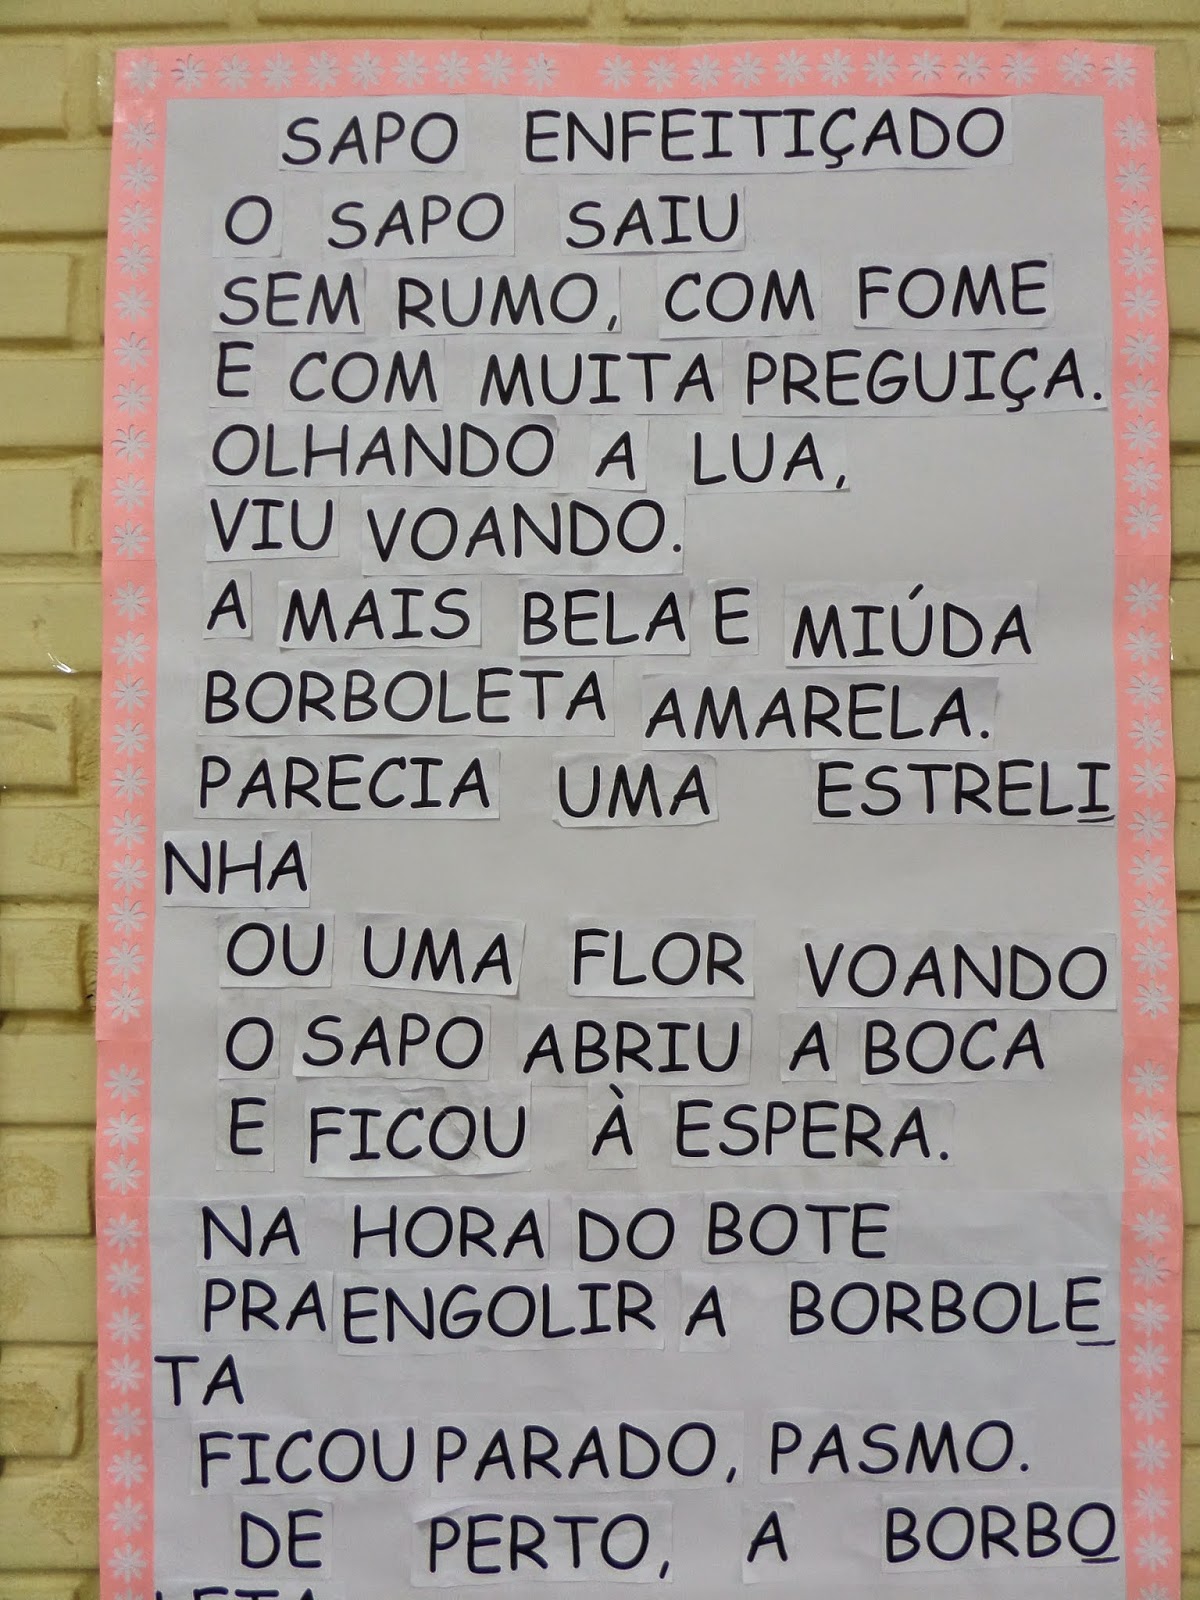 SAPO ENFEITIÇADO
O SAPO SAIU
SEM RUMO, COM FOME
E COM MUITA PREGUIÇA.
OLHANDO A LUA,
VIU VOANDO.
A MAIS BELA E MIÚDA
BORBOLETA AMARELA.
PARECIA UMA ESTRELI
NHA
OU UMA FLOR VOANDO
O SAPO ABRIU A BOCA
E FICOU À ESPERA.
NA HORA DO BOTE
PRA ENGOLIR A BORBOLE
TA
FICOU PARADO, PASMO.
DE PERTO, A BORBO
LETA